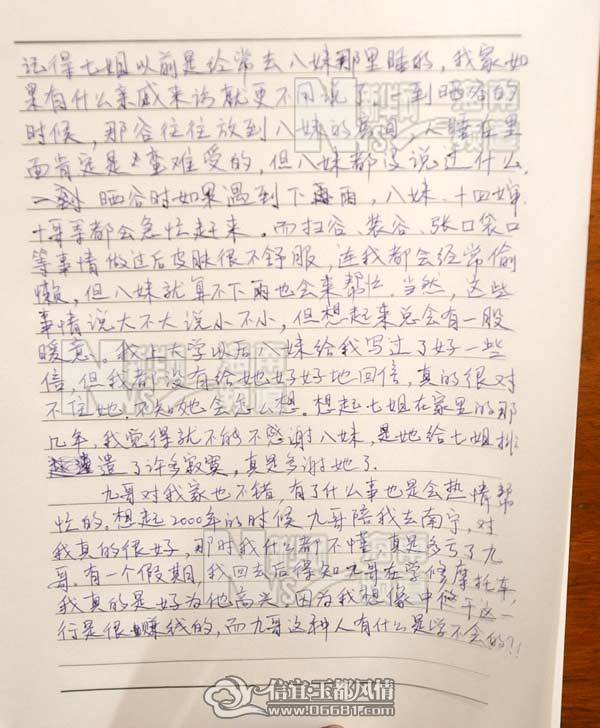 记得七姐以前是经常去八妹那里睡的，我家如
果有什么亲戚来访就更不用说了。到晒谷的
时候，那谷往往放到八妹的房间，人睡在里
面肯定是蛮难受的，但八妹都没说过什么。
一到晒谷时如果遇到下雨，八妹、十四婶、
十哥等都会急忙赶来。而扫谷、装谷、张口袋口
等事情做过后皮肤很不舒服，连我都会经常偷
懒，但八妹就算不下雨也会来帮忙。当然，这些
事情说大不大说小不小，但想起来总会有一股
暖意。我上大学以后八妹给我写过了好一些
信，但我都没有给她好好地回信，真的很对
不住她，不知她会怎么想。想起七姐在家里的那
几年，我觉得就不能不感谢八妹，是她给七姐排
遣了许多寂寞，真是多谢她了。
九哥对我家也不错，有了什么事也是会热情帮
忙的。想起2000年的时候九哥陪我去南宁，对
我真的很好，那时我什么都不懂，真是多亏了九
哥。有一个假期，我回去后得知九哥在学修摩托车，
我真的是好为他高兴，因为我想像中修干这一
行是很赚钱的，而九哥这种人有什么是学不会的？！
信宜玉都风情
www.06681.com